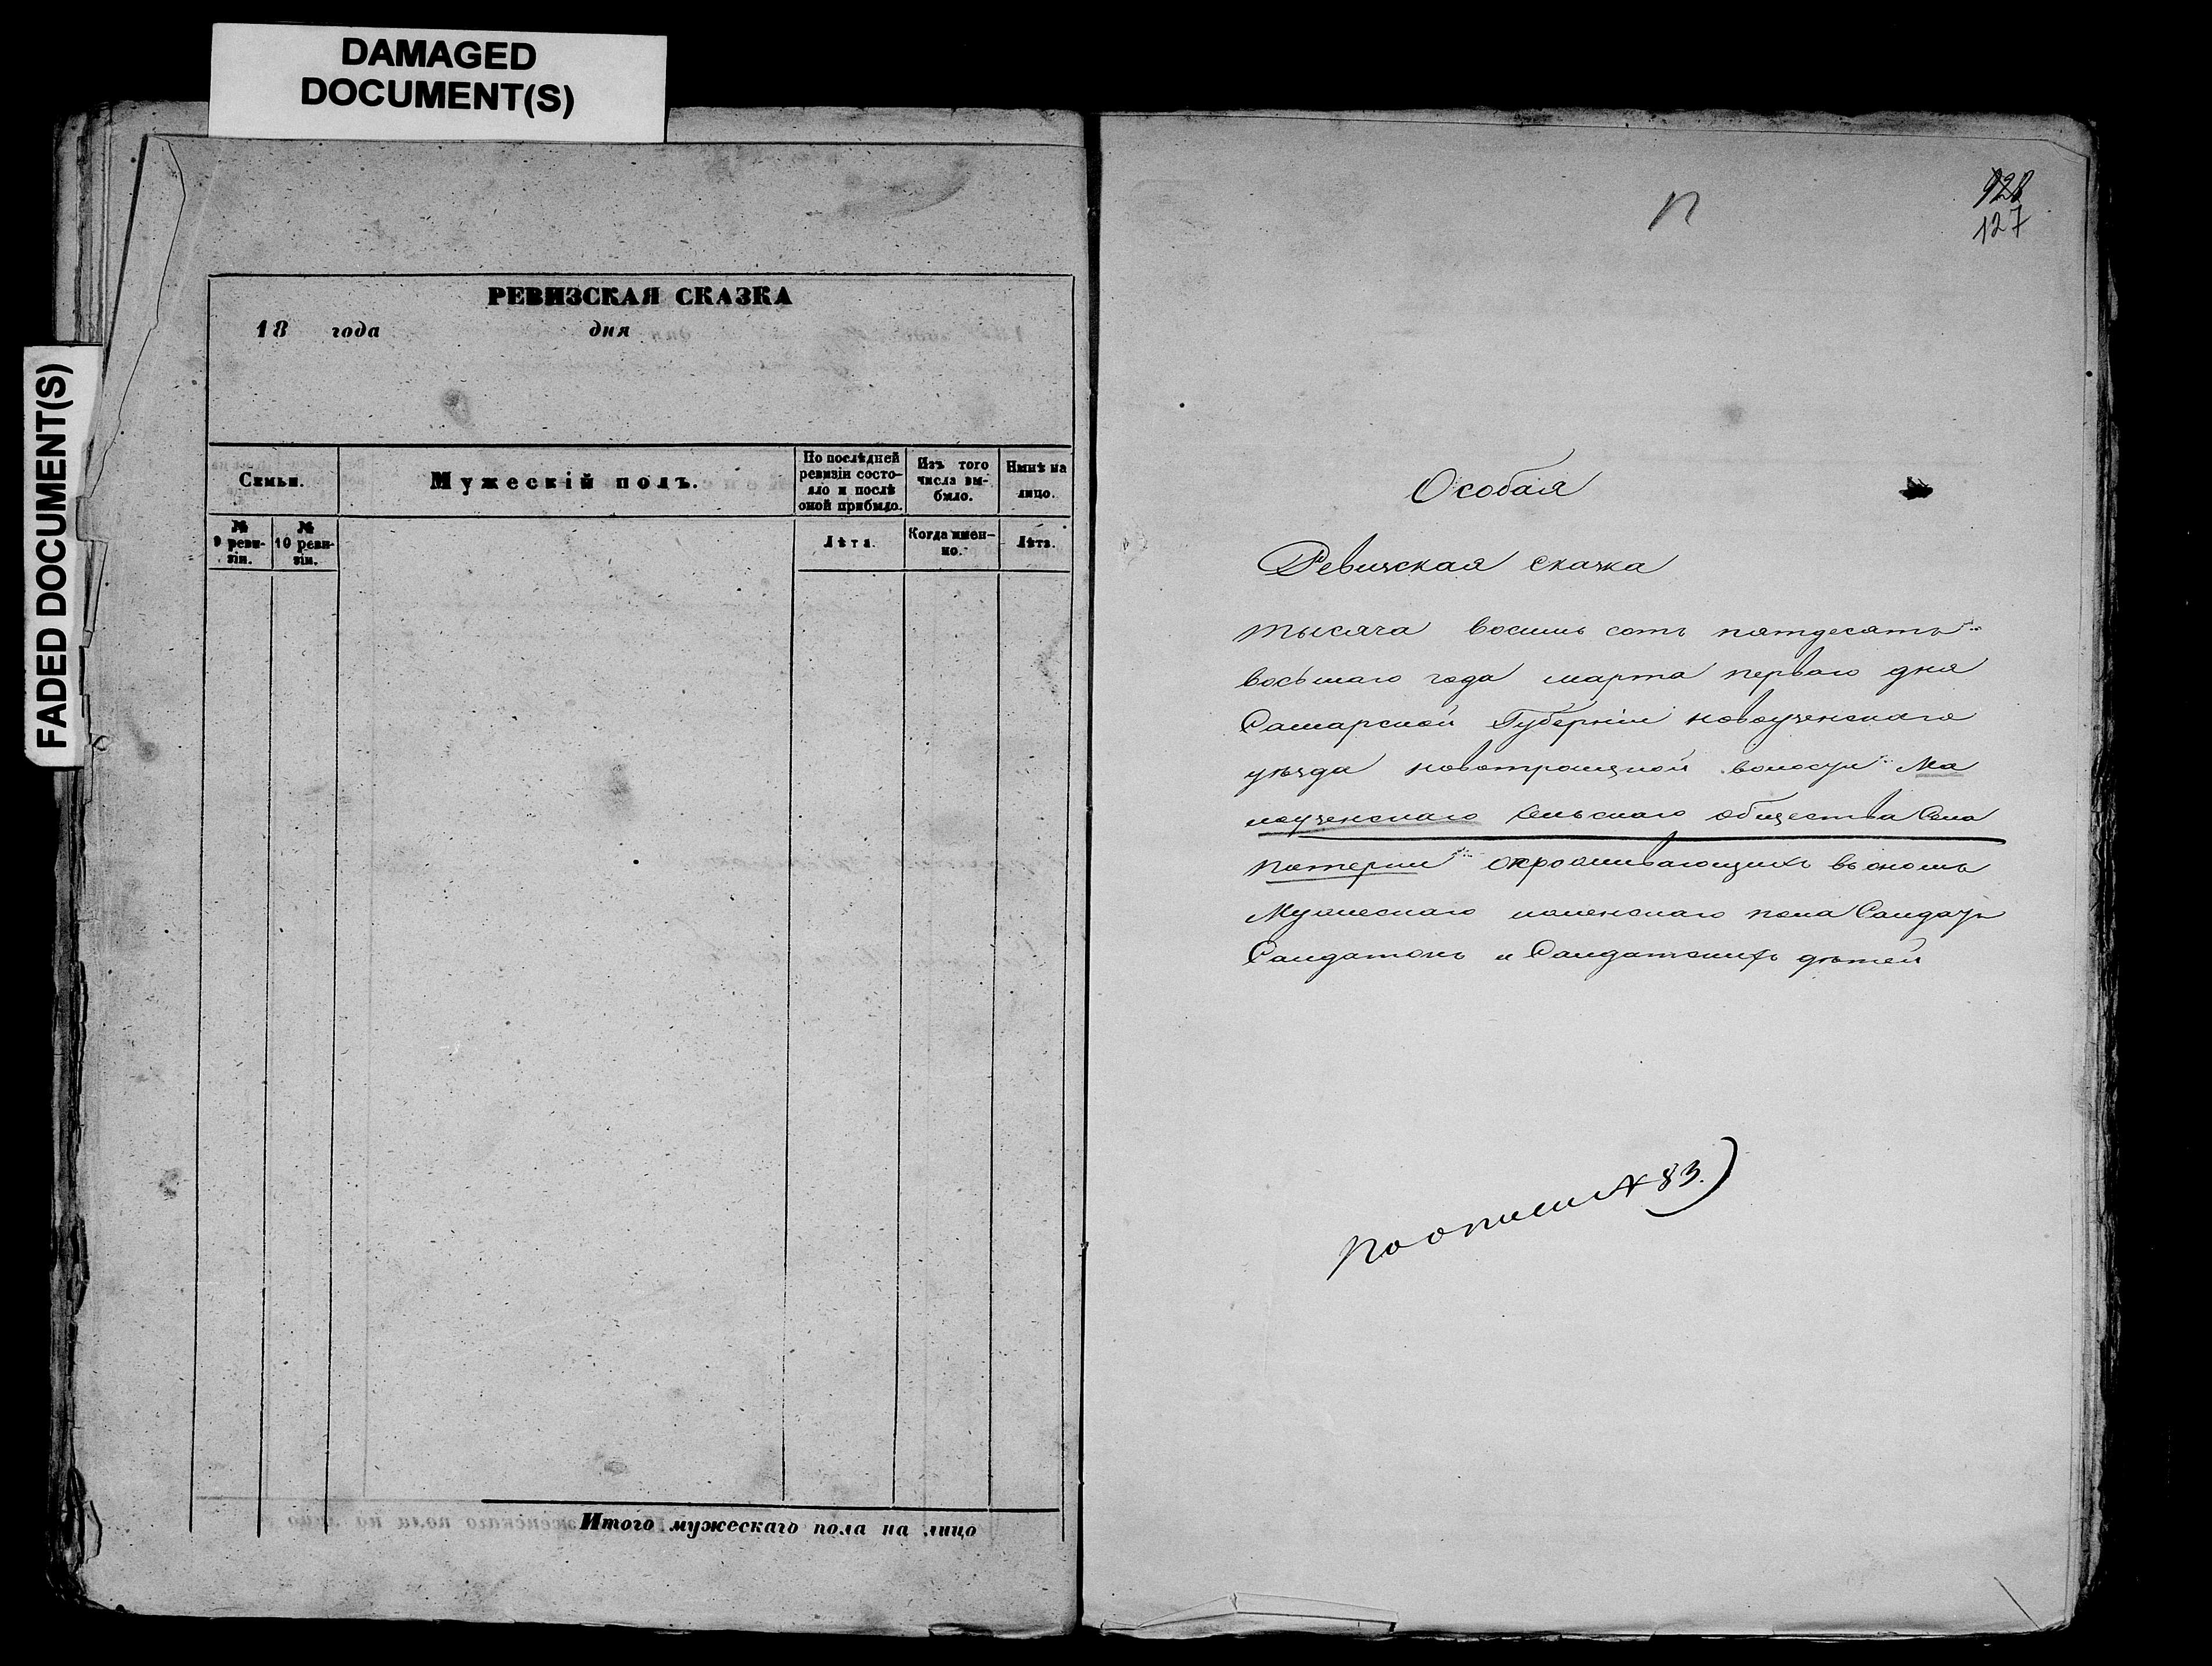 DAMAGED
DOCUMENT(S)
FADED DOCUMENT(S)
РЕВИЗСКАЯ СКАЗКА
18 года дня
Семьи.
Мужескій полъ.
По послѣдней
ревизіи состо-
яло и послѣ
оной прибыло.
Изъ того
числа вы-
было.
Нынѣ на
лицо.
№
9 реви-
зіи.
№
10 реви-
зіи.
Лѣта.
Когда имен-
но.
Лѣта.
Итого мужескаго пола на лицо
128
127
Особая
Ревизская сказка
тысяча восемь сотъ пятдесятъ
восьмаго года марта перваго дня
Самарской Губерніи новоузенскаго
уѣзда новотроицкой волости Ма
лоузенскаго сельскаго общества Села
Питерки о проживающихъ въ ономъ
Мужескаго и женскаго пола Солдатъ
Солдатокъ и Солдатскихъ дѣтей
По описи № 83.)